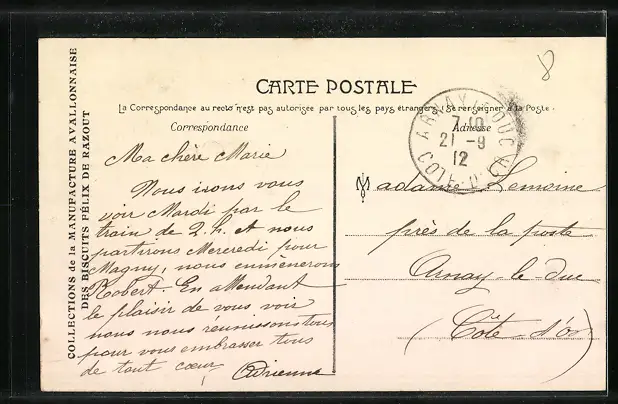 8
COLLECTIONS de la MANUFACTURE AVALLONNAISE
DES BISCUITS FÉLIX DE RAZOUT
CARTE POSTALE
La Correspondance au recto n'est pas autorisée par tous les pays étrangers (Se renseigner à la Poste.
Correspondance
Ma chère Marie
Nous irons vous
voir Mardi par le
train de 2.h. et nous
partirons Mercredi pour
Magny, nous emmènerons
Robert. En attendant
le plaisir de vous voir
nous nous réunissons tous
pour vous embrasser tous
de tout cœur,
Adrienne
Adresse
ARNAY-LE-DUC
21 -9
12
CÔTE-D'OR
Madame Lemoine
près de la poste
Arnay-le-Duc
(Côte d'Or)